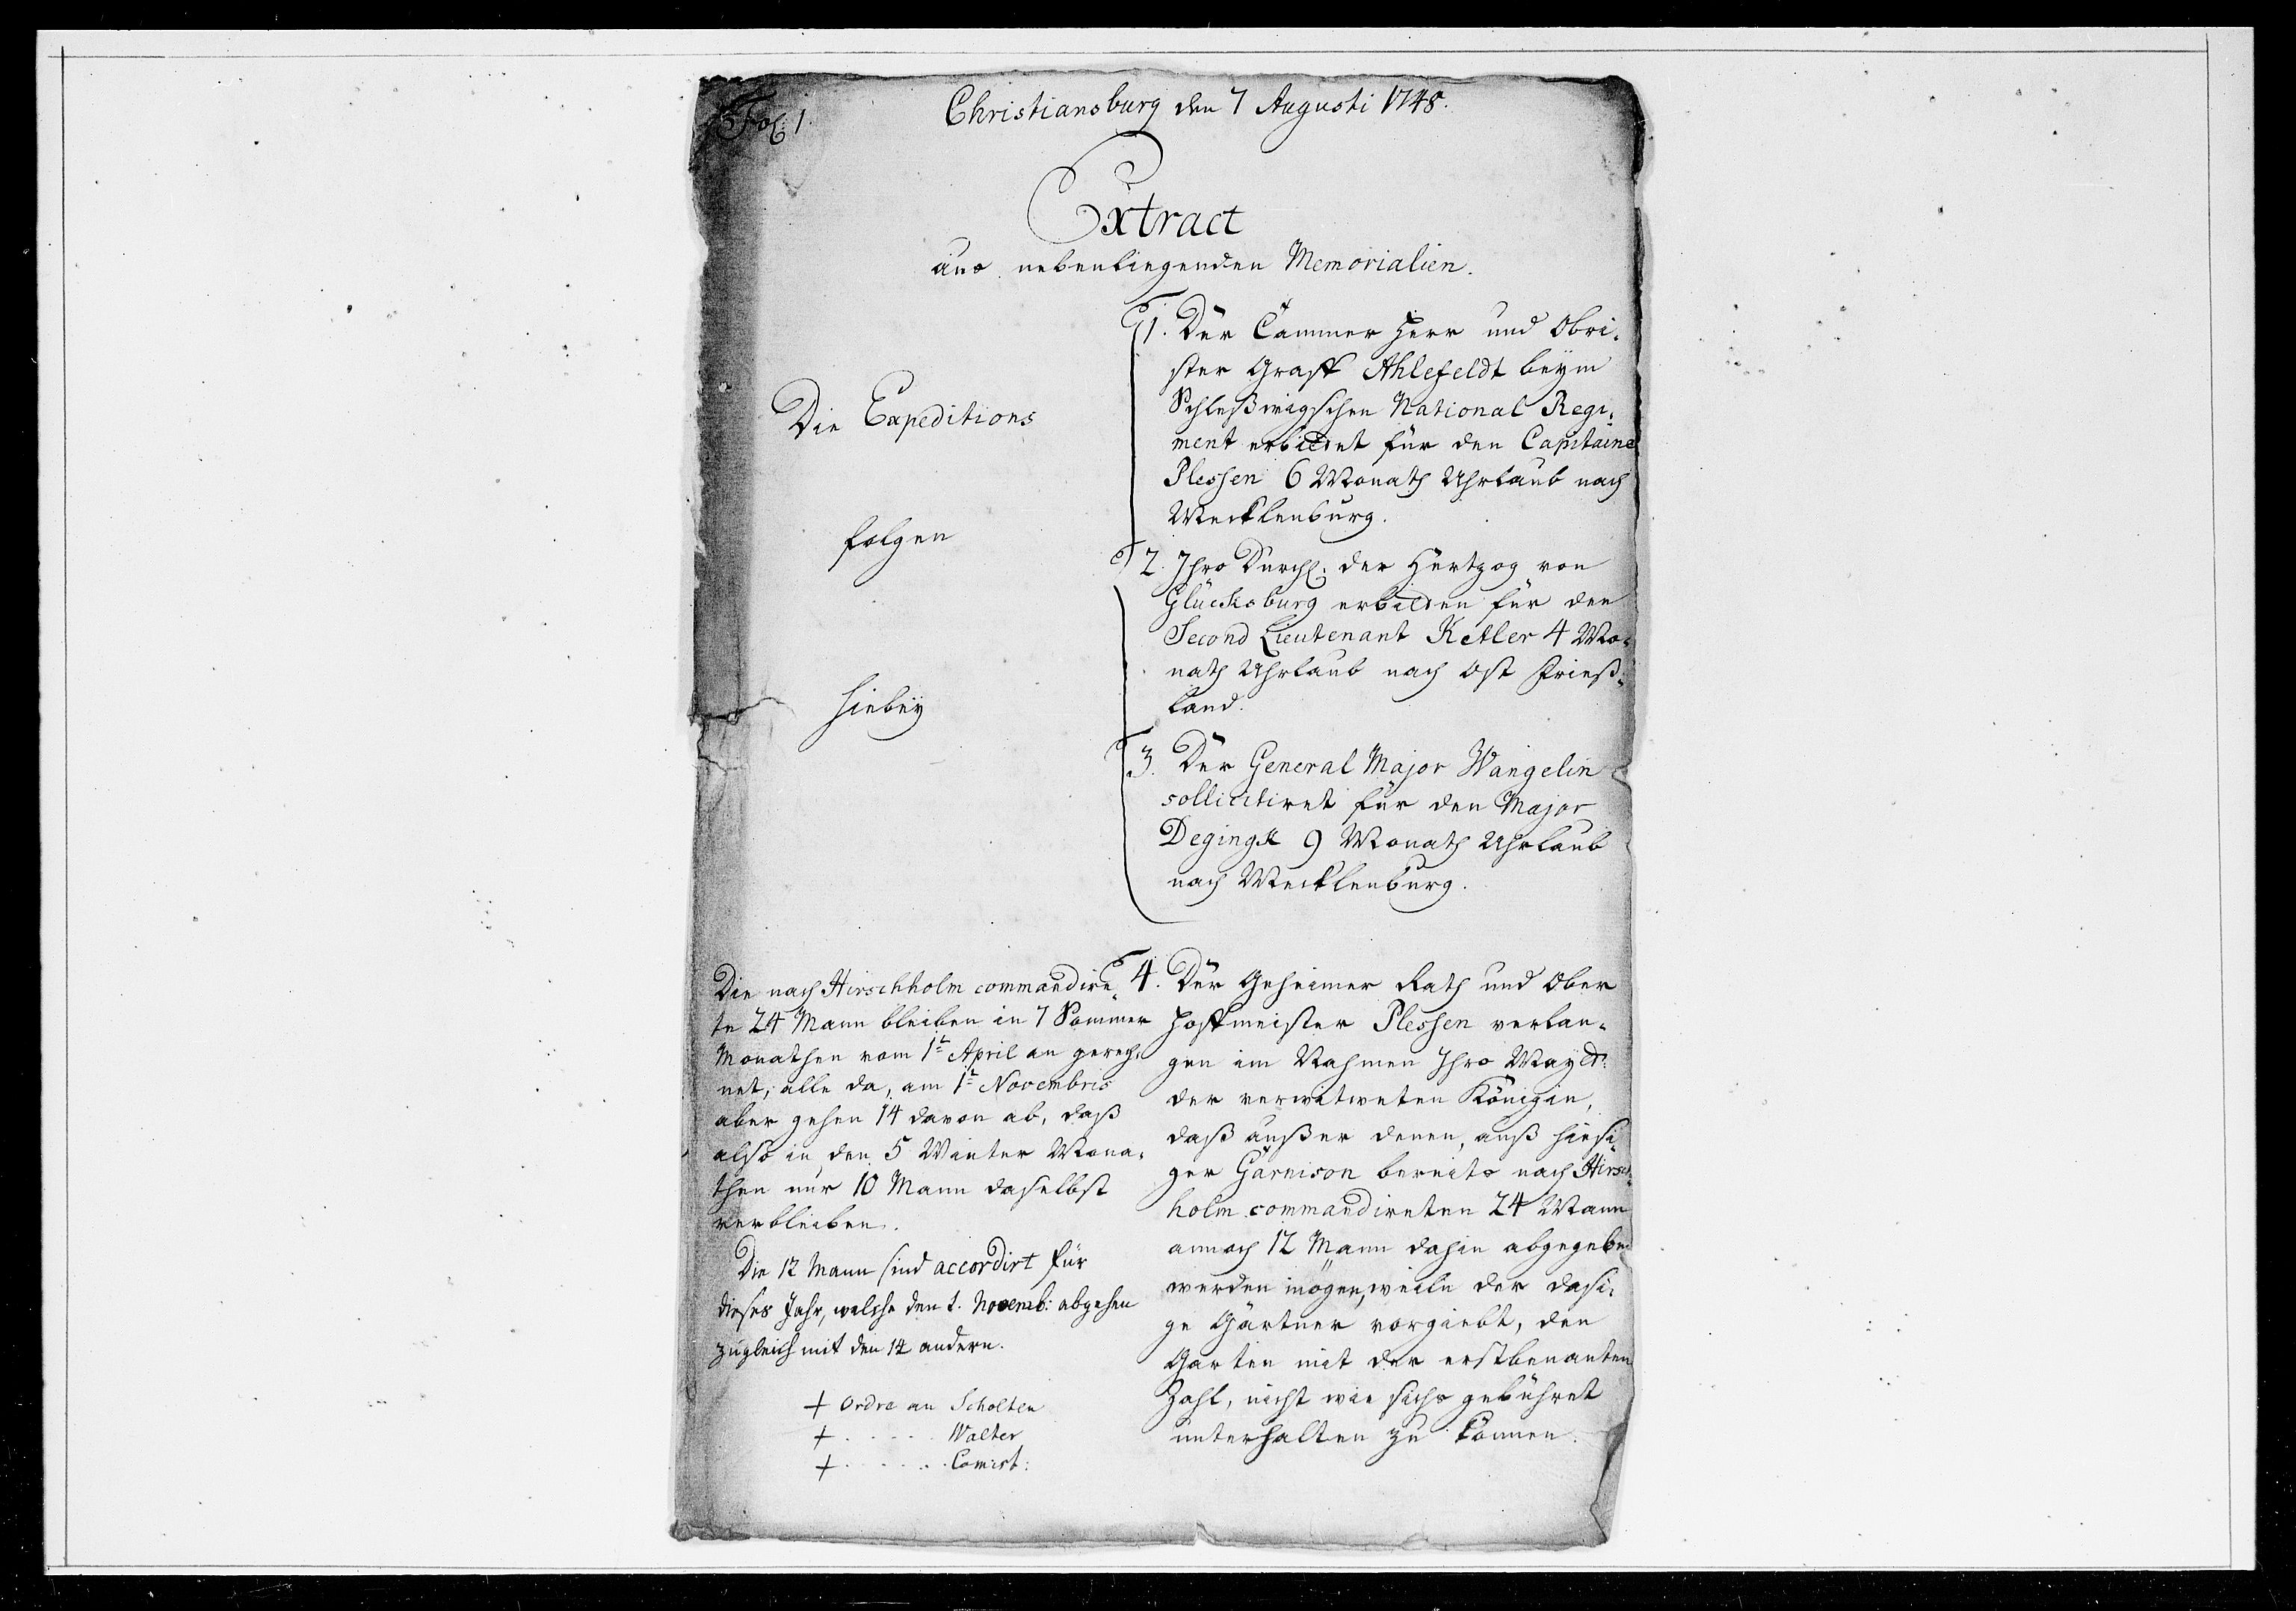 Fol. 1.
Christiansburg den 7 Augusti 1748.
Extract
aus nebenliegenden Memorialien.
1. Der Cammer Herr und Obri-
ster Graff Ahlefeldt beym
Schleßwigschen National Regi-
ment erbittet für den Capitaine
Plessen 6 Monath Uhrlaub nach
Mecklenburg.
2. Ihro Durchl. der Hertzog von
Glücksburg erbitten für den
Second Lieutenant Ketler 4 Mo-
nath Uhrlaub nach Ost Frieß-
land.
3. Der General Major Wangelin
sollicitiret für den Major
Degingk 9 Monath Uhrlaub
nach Mecklenburg.
Die Expeditions
folgen
hiebey
4. Der Geheimer Rath und Ober
Hoffmeister Plessen verlan-
gen im Nahmen Ihro Mayst:
der verwitweten Königin,
daß außer denen, auß hiesi-
ger Garnison bereits nach Hirsch-
holm commandireten 24 Mann
annoch 12 Mann dahin abgegeben
werden mögen, weile der dasi-
ge Gärtner vorgiebt, den
Garten mit der erstbenanten
Zahl, nicht wie sichs gebühret
unterhalten zu können.
Die nach Hirschholm commandire-
te 24 Mann bleiben in 7 Sommer
Monathen vom 1t April an gerech-
net, alle da, am 1t Novembris
aber gehen 14 davon ab, daß
also in den 5 Winter Mona-
then nur 10 Mann daselbst
verbleiben.
Die 12 Mann sind accordirt für
dieses Jahr, welche den 1. Novemb: abgehen
zugleich mit den 14 andern.
+ Ordre an Scholten
+ . . . . . Walter
+ . . . . . Comist: